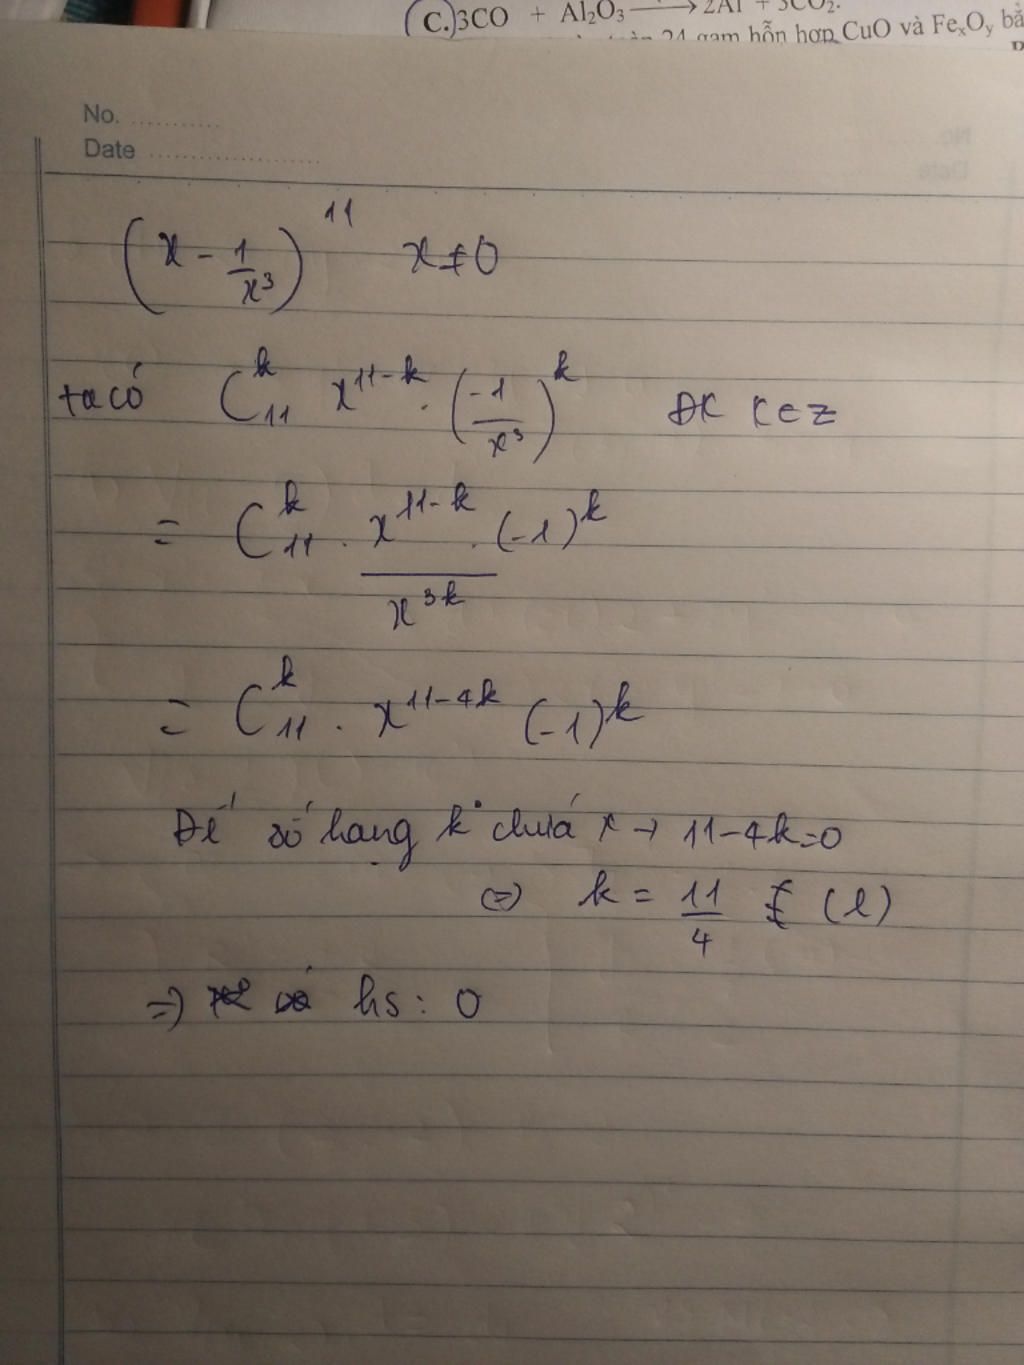 C. 3CO + Al₂O₃ ⟶ 2Al + 3CO₂.
24 gam hỗn hợp CuO và FeₓOᵧ bằ
No. ............
Date ........................
(x - 1/x³)¹¹ x ≠ 0
ta có C₁₁ᵏ x¹¹⁻ᵏ . (-1/x³)ᵏ ĐK K ∈ Z
= C₁₁ᵏ . x¹¹⁻ᵏ/x³ᵏ . (-1)ᵏ
= C₁₁ᵏ . x¹¹⁻⁴ᵏ (-1)ᵏ
Để số hạng k° chứa x → 11-4k=0
⇔ k = 11/4 (l)
⇒ hs: 0